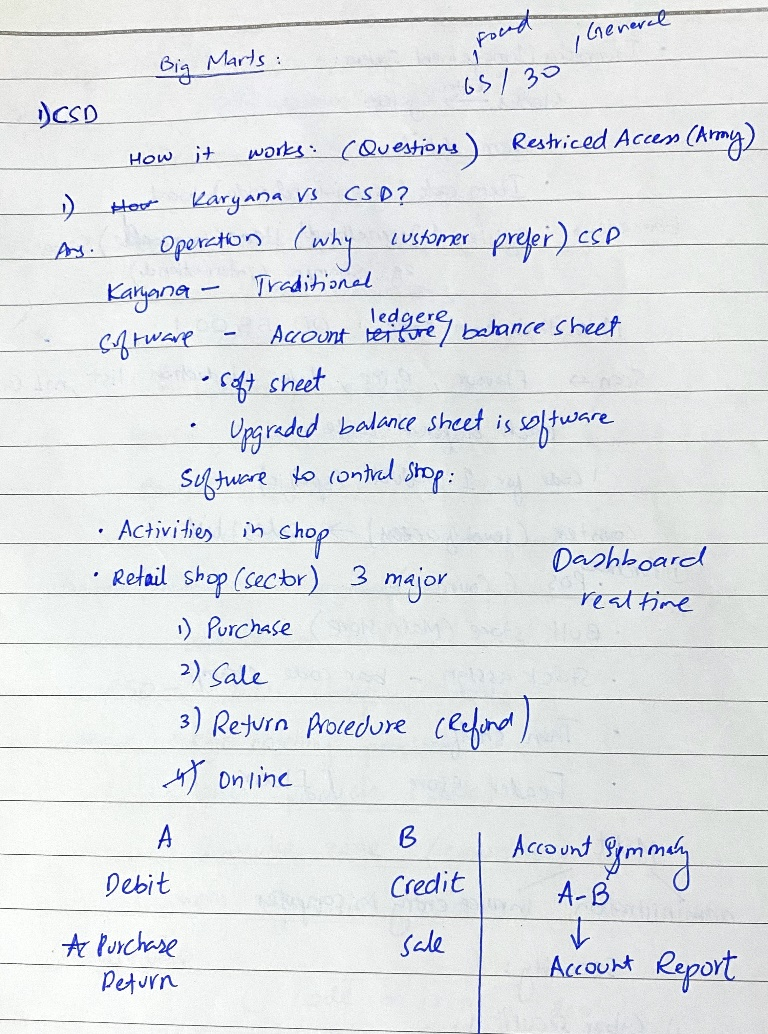 Food , General
Big Marts : 65 / 30
1) CSD
How it works: (Questions) Restriced Access (Army)
1) How Karyana vs CSD?
Ans. Operation (why customer prefer) CSD
Karyana – Traditional
Software – Account ledgere / balance sheet
• Soft sheet
• Upgraded balance sheet is software
Software to control shop:
• Activities in shop
• Retail shop (sector) 3 major
Dashboard
real time
1) Purchase
2) Sale
3) Return Procedure (Refund)
4) Online
A B Account Summary
Debit Credit A-B
↓
Purchase Sale Account Report
Return